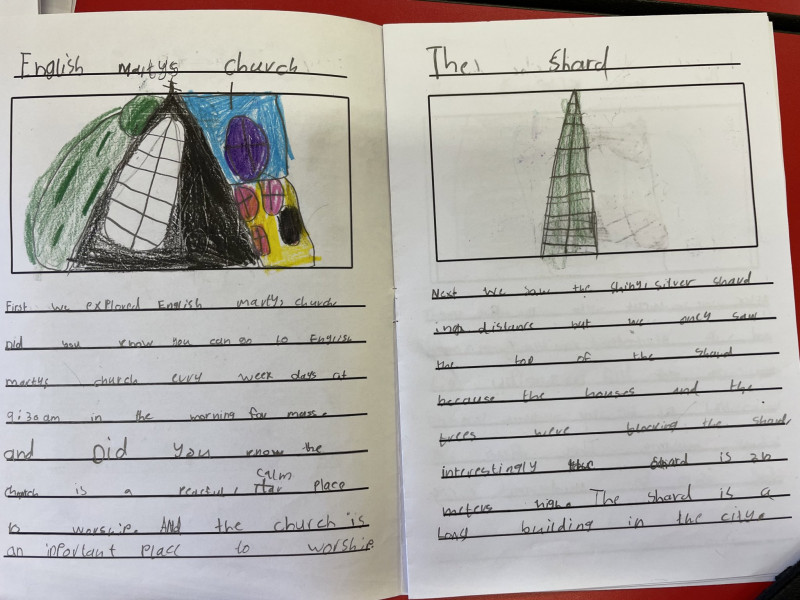 English martys church
First we explored English martys church
Did you know you can go to English
martys church evry week days at
9:30am in the morning for mass.
and Did you know the
church is a peaceful, calm place
to worship. And the church is
an inportant place to worship.
The Shard
Next we saw the shiny, silver shard
distance but we only saw
the top of the shard
because the houses and the
trees were blocking the shard
interestingly shard is
meters high. The shard is a
long building in the city.